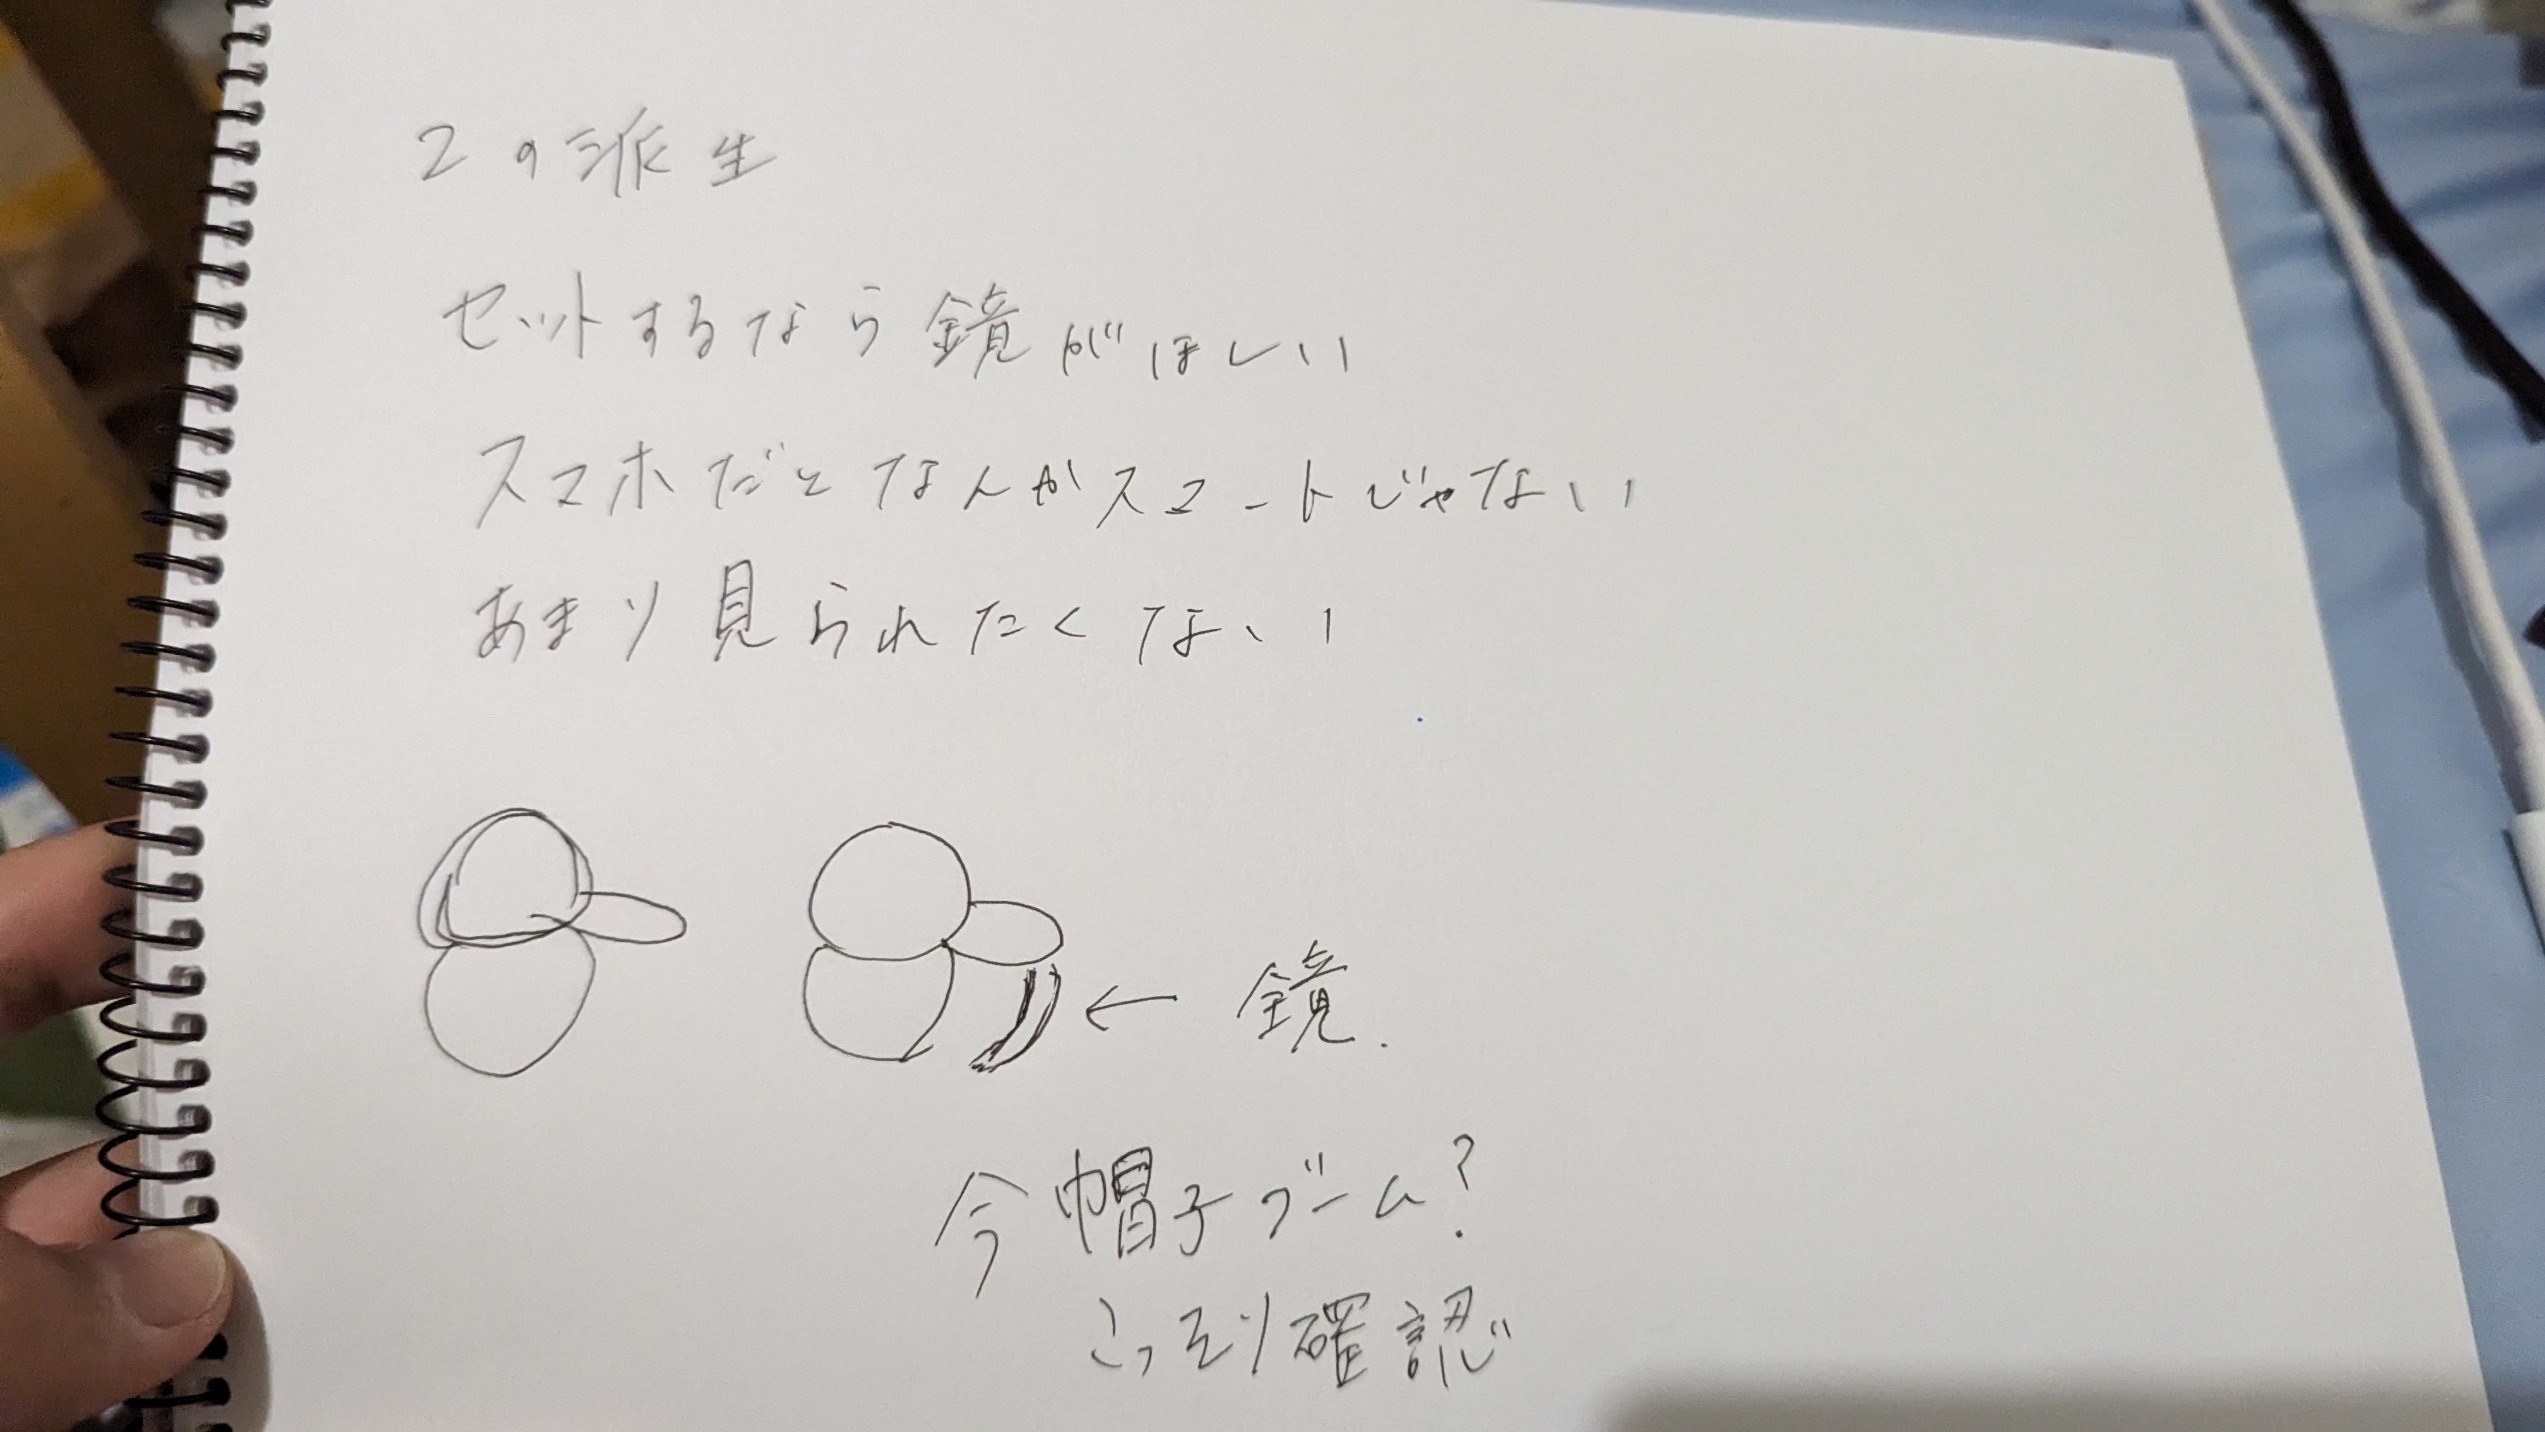 2の派生
セットするなら鏡がほしい
スマホだとなんかスマートじゃない
あまり見られたくない
← 鏡.
今帽子ブーム?
こっそり確認